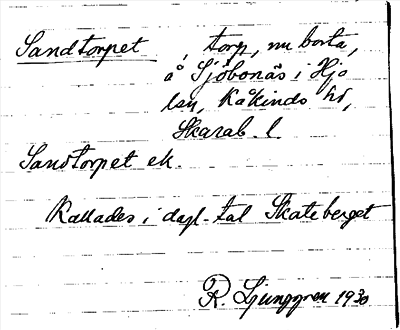 Sandtorpet, torp, nu borta,
å Sjöbonäs i Hjo
lsn, Kåkinds hd,
Skarab. l.
Sandtorpet ek.
Kallades i dagl. tal Skateberget
R. Ljunggren 1930